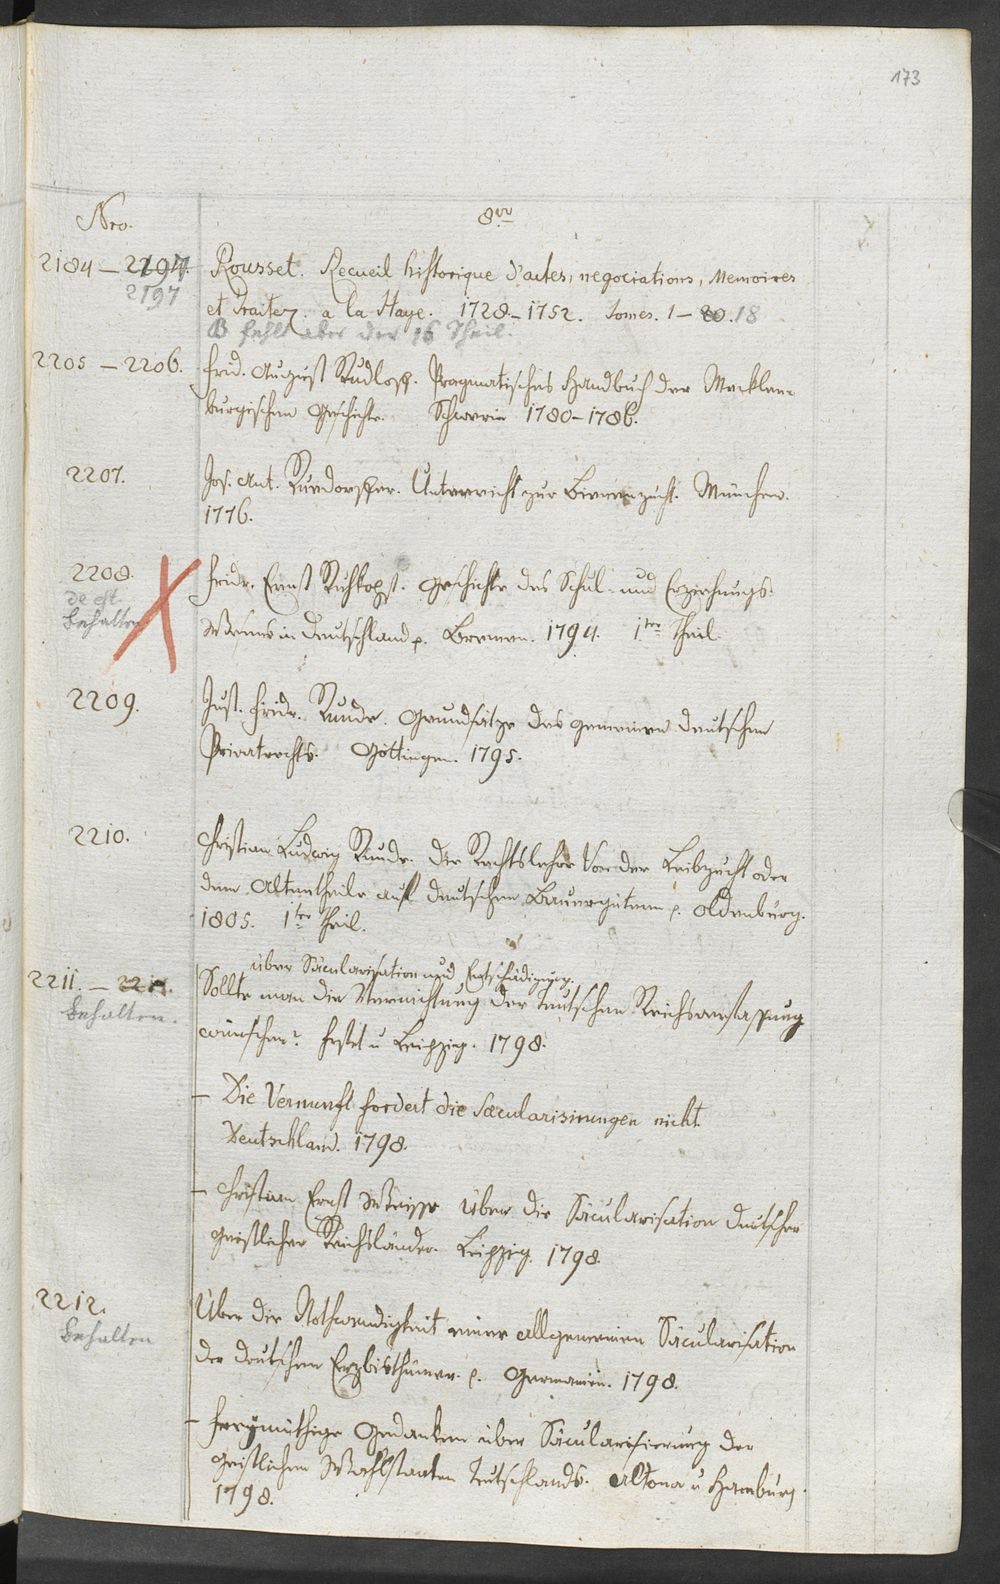 173
Nro.
8vo
2184 – 2194. Rousset. Recueil historique d'actes, negociations, Memoires
2197
et Traitez. a la Haye. 1728.–1752. Tomes. 1 – 20. 18
fehlt aber der 16 Theil.
2205 – 2206. Frid. August Rudloff. Pragmatisches Handbuch der Mecklen-
burgischen Geschichte. Schwerin 1780–1786.
2207. Jos. Ant. Ruedorffer. Unterricht zur Bienenzucht. München.
1776.
2208. Fridr. Ernst Ruhkopf. Geschichte des Schul- und Erziehungs-
deest
behalten
Wesens in Deutschland p. Bremen. 1794. 1ter Theil.
2209. Just. Fridr. Runde. Grundsätze des gemeinen deutschen
Privatrechts. Göttingen. 1795.
2210. Christian Ludwig Runde. Die Rechtslehre Von der Leibzucht oder
dem Altentheile auf deutschen Bauerngütern p. Oldenburg.
1805. 1ter Theil.
über Säcularisation und Entschädigung.
2211. – Sollte man die Vernichtung der teutschen Reichsverfassung
behalten.
wünschen? u Leipzig. 1798.
– Die Vernunft fordert die Sæcularisirungen nicht.
Deutschland. 1798.
– Christian Ernst Weisse Über die Säcularisation deutscher
geistlicher Reichsländer. Leipzig. 1798.
2212. Über die Nothwendigkeit einer allgemeinen Säcularisation
behalten
der deutschen Erzbisthümer. p. Germanien. 1798.
– freymüthige Gedanken über Säcularisierung der
geistlichen Wahlstaaten Teutschlands. Altona u Hamburg.
1798.